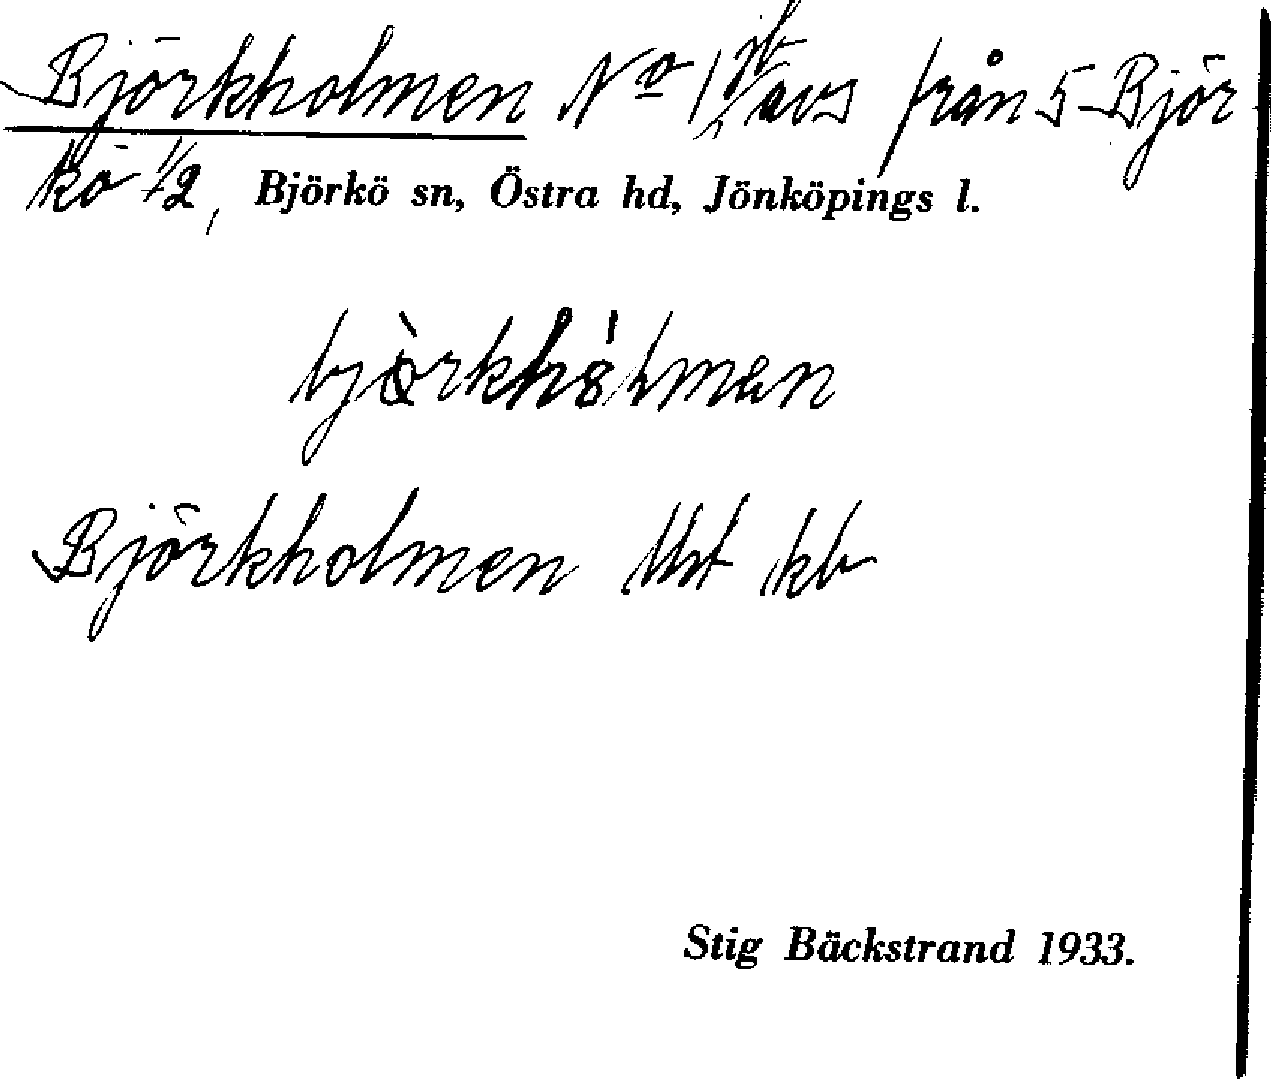 Björkholmen No 1 avs från 5 Björ
kö 1/2, Björkö sn, Östra hd, Jönköpings l.
Björkholmen kb
Stig Bäckstrand 1933.